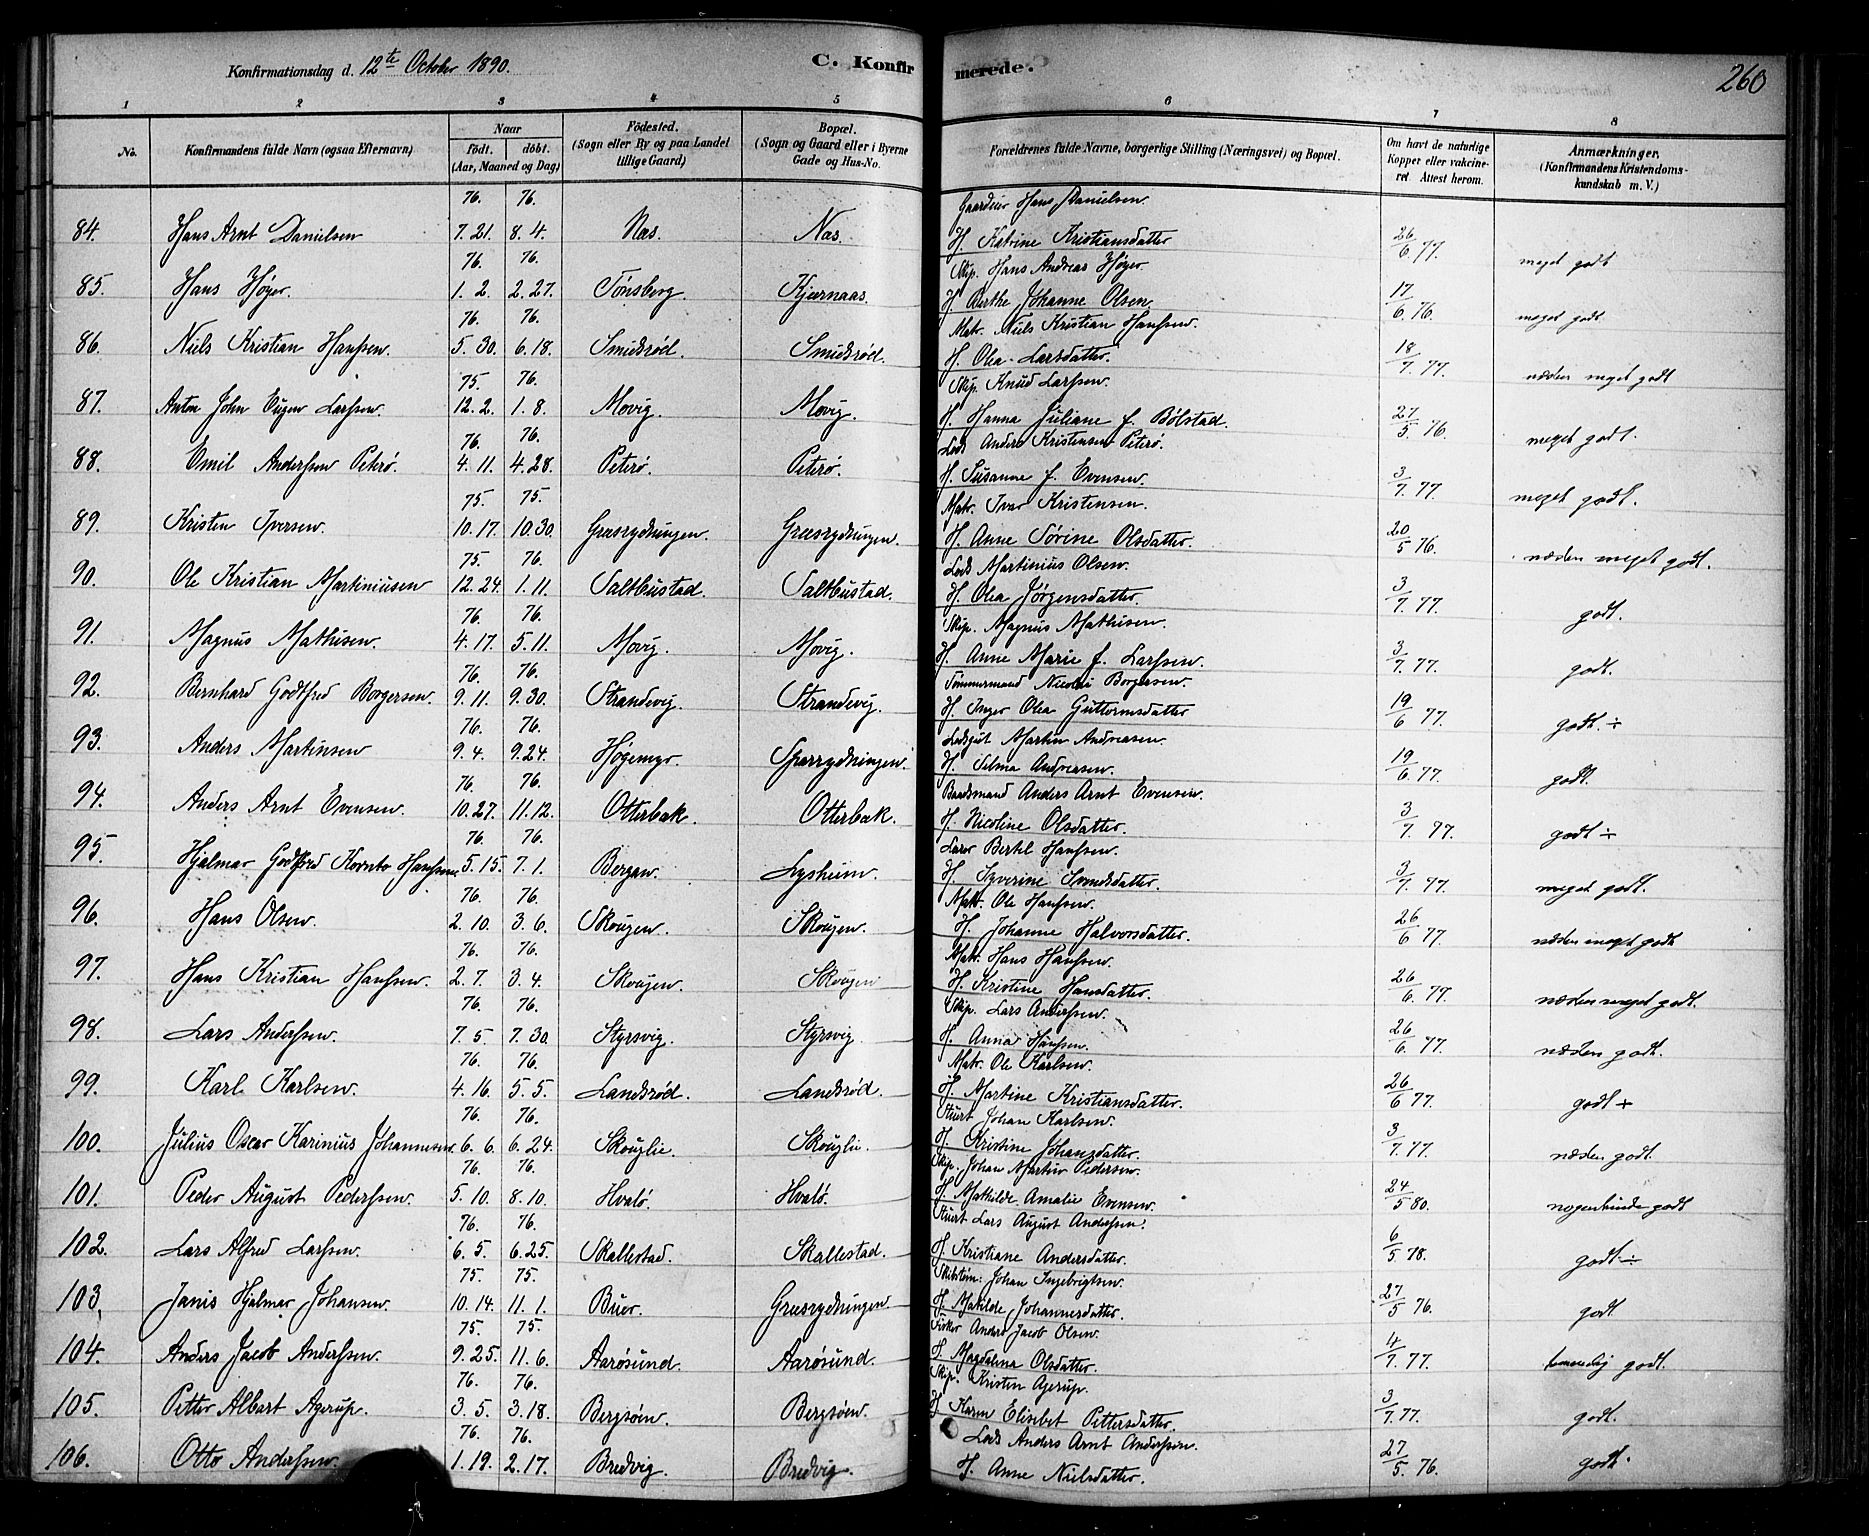 Konfirmationsdag d. 12te October 1890.
C. Konfirmerede.
260
1 2 3 4 5 6 7 8
No.
Konfirmandens fulde Navn (ogsaa Efternavn)
Naar
Født. døbt.
(Aar, Maaned og Dag)
Fødested.
(Sogn eller By og paa Landet
tillige Gaard)
Bopæl.
(Sogn og Gaard eller i Byerne
Gade og Hus-No.
Forældrenes fulde Navne, borgerlige Stilling (Næringsvei) og Bopæl.
Om havt de naturlige
Kopper eller vakcine-
ret. Attest herom.
Anmærkninger.
(Konfirmandens Kristendoms-
kundskab m. V.)
76. 76. Hans Danielsen.
84. Hans Arnt Danielsen 7. 21. 8. 4. Næs. Næs. H. Katrine Kristiansdatter 26/6. 77. meget godt
76. 76. Skip. Hans Andreas Høyer
85. Hans Høyer. 1. 2. 2. 27. Tönsberg. Kjærnaas. H. Berthe Johanne Olsen 17/6. 76. meget godt
76. 76. Matr. Niels Kristian Hanssen.
86. Niels Kristian Hanssen. 5. 30. 6. 18. Smidsrød. Smidsrød. H. Olea Larsdatter. 18/7. 77. næsten meget godt
75. 76. Skip. Knud Larssen.
87. Anton John Eugen Larssen. 12. 2. 1. 8. Movig. Movig. H. Hanna Juliane f. Bølstad. 27/5. 76. meget godt.
76. 76. Lods Anders Kristensen Peterö.
88. Emil Anderssen Peterö 4. 11. 4. 28. Peterö. Peterö. H. Susanne f. Evensen. 3/7. 77. meget godt.
75. 75. Matr. Ivar Kristensen.
89. Kristen Iversen. 10. 17. 10. 30. Græsrydningen. Græsrydningen. H. Anne Sörine Olsdatter. 20/5 76. næsten meget godt.
75. 76. Lods Martinius Olsen.
90. Ole Kristian Martiniusen 12. 24. 1. 11. Saltbustad. Saltbustad. H. Olea Jørgensdatter. 3/7. 77. godt.
76. 76. Skip. Magnus Mathisen.
91. Magnus Mathisen. 4. 17. 5. 11. Movig. Movig. H. Anne Marie f. Larssen. 3/7. 77. godt.
76. 76. Tömmermand Nicolai Borgersen.
92. Bernhard Godtfred Borgersen. 9. 11. 9. 30. Strandevig. Strandevig. H. Inger Olea Guttormsdatter 19/6 77. godt. ÷
76. 76. Martin Andreasen.
93. Anders Martinsen 9. 4. 9. 24. Høgemyr. Græsrydningen. H. Selma Andreasen. 19/6. 77. godt.
76. 76. Baadsmand Anders Arnt Evensen.
94. Anders Arnt Evensen. 10. 27. 11. 12. Otterbæk. Otterbæk. H. Nicoline Olsdatter. 3/7. 77. godt ÷
76. 76. Lærer Bertel Hanssen.
95. Hjalmar Godtfred Hanssen. 5. 15. 7. 1. Bergan. Lysheim. H. Syverine 3/7. 77. meget godt.
76. 76. Matr. Ole Hanssen.
96. Hans Olsen. 2. 10. 3. 6. Skougen. Skougen. H. Johanne Halvorsdatter. 26/6 77. næsten meget godt
76. 76. Matr. Hans Hanssen.
97. Hans Kristian Hanssen. 2. 7. 3. 4. Skougen. Skougen H. Kristine Hansdatter. 26/6. 77. næsten meget godt.
76. 76. Skip. Lars Anderssen.
98. Lars Anderssen. 7. 5. 7. 30. Styrsvig. Styrsvig H. Anna Hanssen. 26/6. 77. næsten godt.
76. 76. Matr. Ole Karlsen.
99. Karl Karlsen. 4. 16. 5. 5. Landsrød. Landsrød. H. Martine Kristiansdatter. 26/6 77. godt ÷
76. 76. Stuert Johan Karlsen.
100. Julius Oscar Karinius Johannesen. 6. 6. 6. 24. Skouglie. Skouglie. H. Kristine Johansdatter. 3/7. 77. næsten godt.
76. 76. Skip. Johan Martin Pedersen.
101. Peder August Pederssen. 5. 10. 8. 10. Hvalö. Hvalö. H. Mathilde Amalie Evensen. 24/5 80. nogenlunde godt
76. 76. Stuert Lars August Anderssen.
102. Lars Alfred Larssen. 6. 5. 6. 25. Skallestad. Skallestad. H. Kristiane Andersdatter. 6/5 78. godt ÷
75. 75. Johan Ingebrigtsen
103. Janis Hjalmar Johansen. 10. 14. 11. 1. Buer. Græsrydningen H. Matilde Johannesdatter. 27/5 76. godt
75. 75. Fisker Anders Jacob Olsen.
104. Anders Jacob Anderssen. 9. 25. 11. 6. Aarösund. Aarösund. H. Magdalena Olsdatter. 4/7. 77. godt.
76. 76. Skip. Kristen Agerup.
105. Petter Albert Agerup. 3. 5. 3. 18. Bergsöen. Bergsöen. H. Karen Elisebet Pettersdatter. 3/7. 77. godt.
76. 76. Lods Anders Arnt Anderssen.
106. Otto Anderssen. 1. 19. 2. 17. Bredvig. Bredvig. H. Anne Nielsdatter. 27/5. 76. godt.